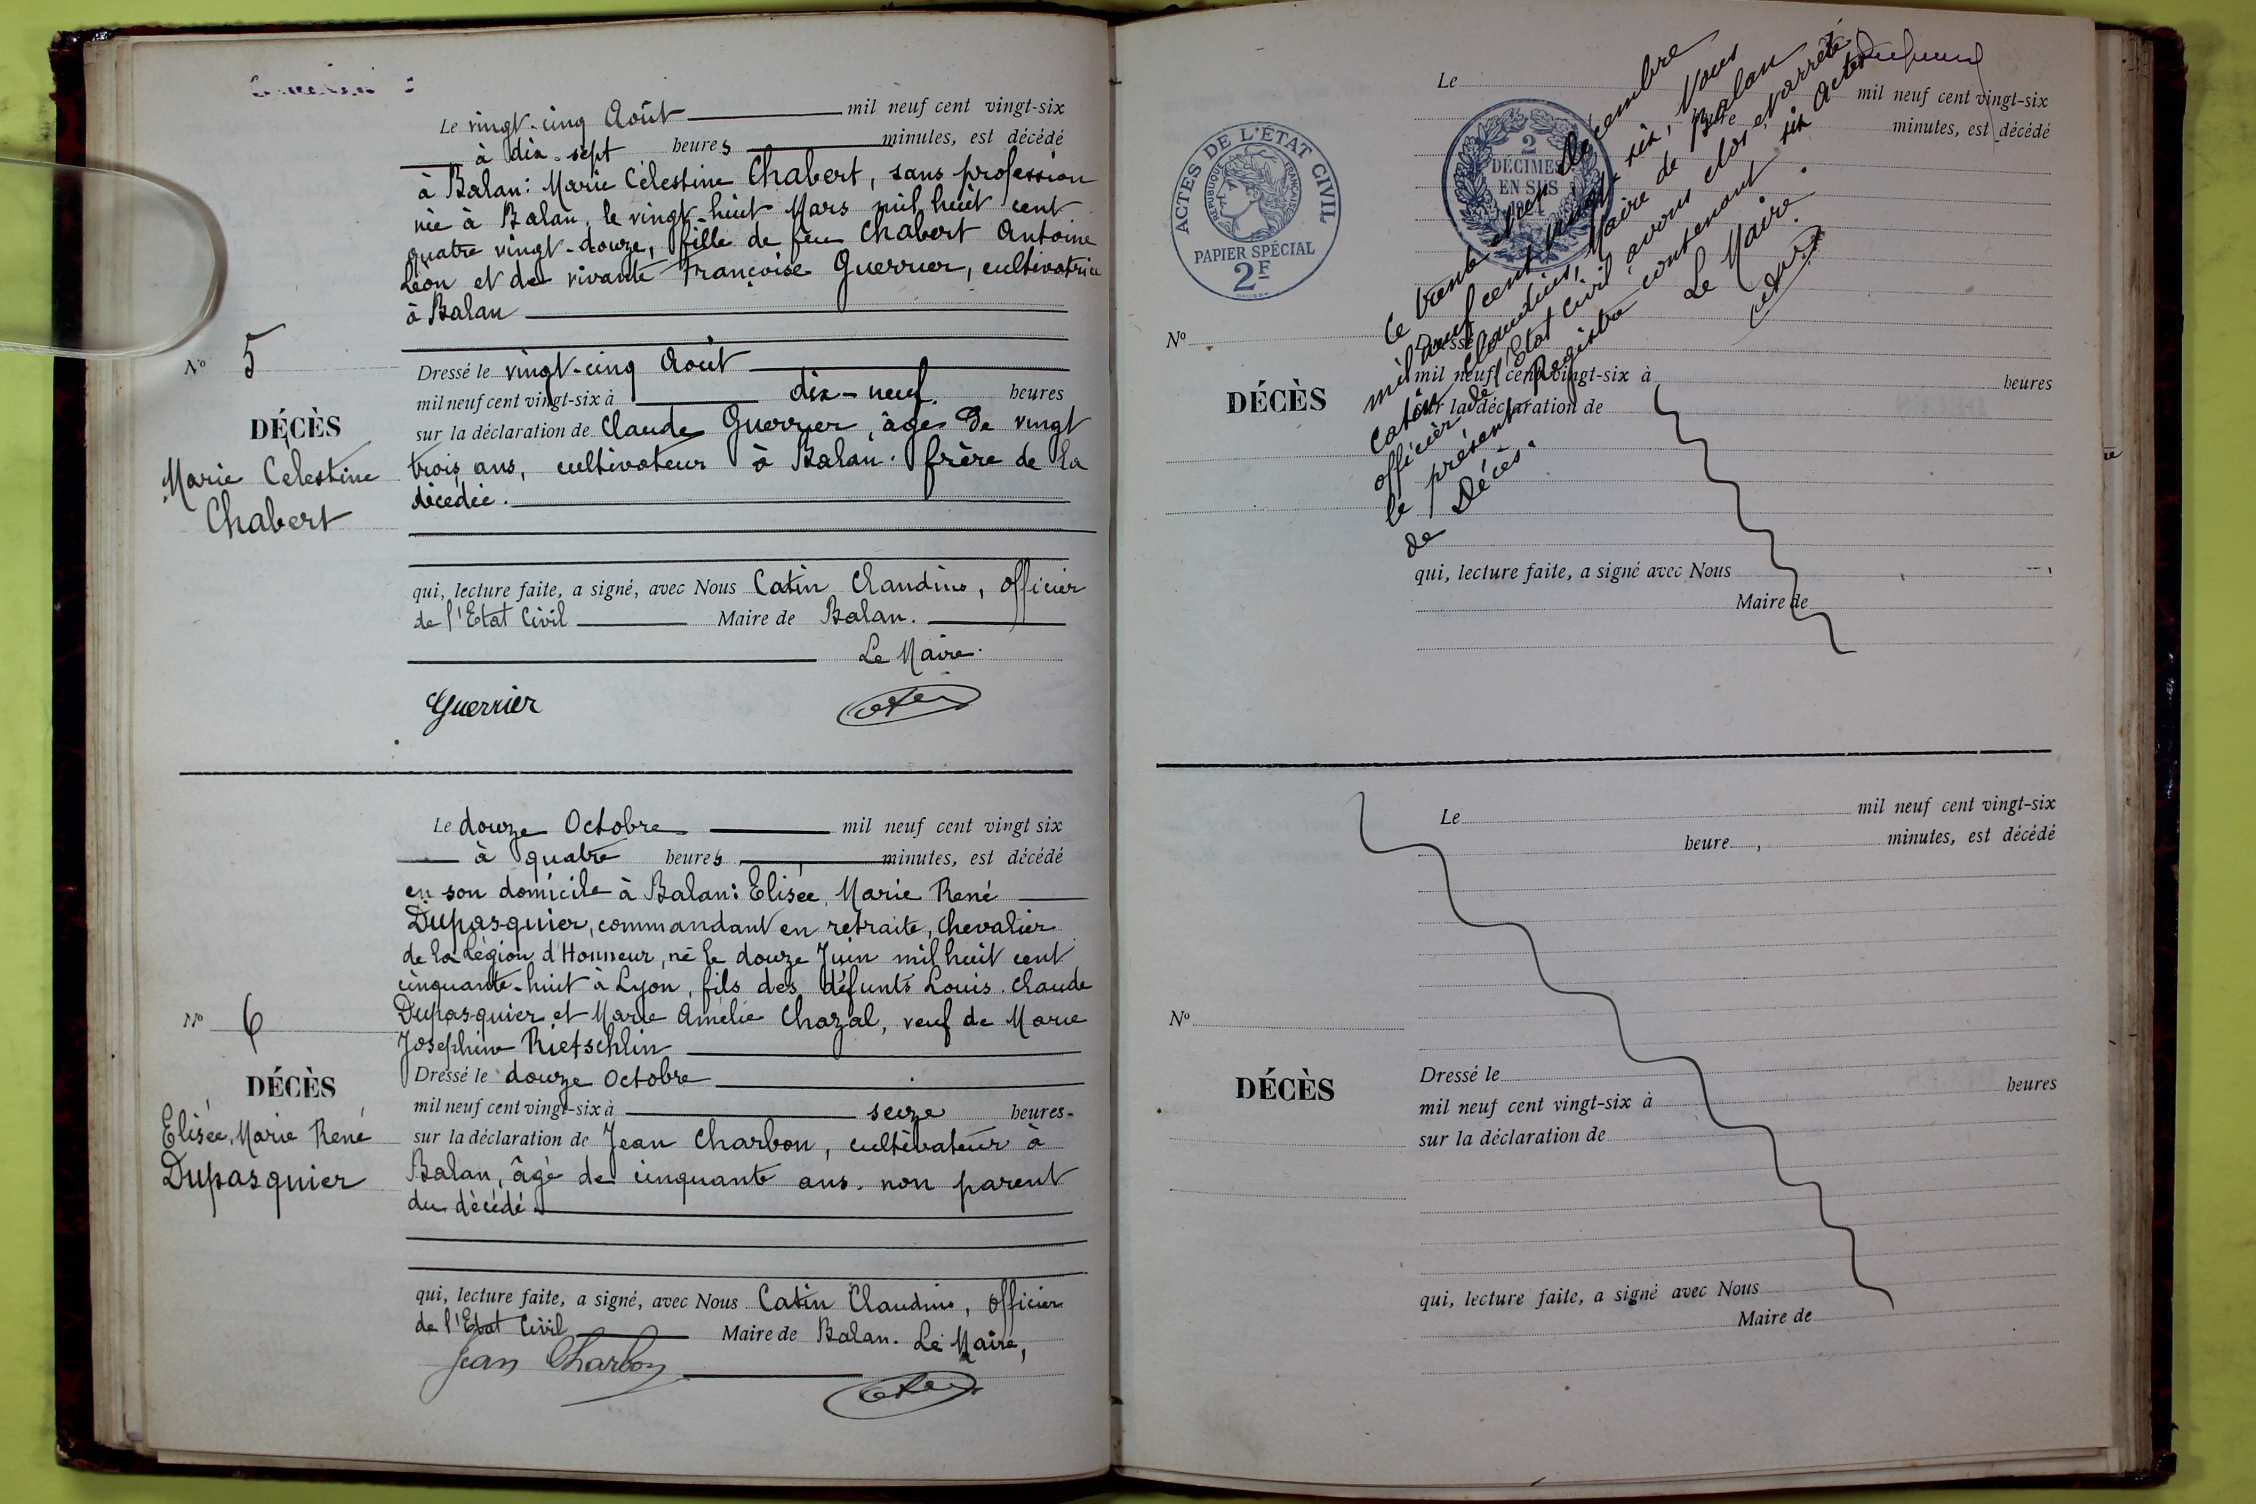 Le vingt-cinq Août mil neuf cent vingt-six
à dix-sept heures minutes, est décédé
à Balan: Marie Célestine Chabert, sans profession
née à Balan, le vingt-huit Mars mil huit cent
quatre vingt-douze, fille de feu Chabert Antoine
Léon et de vivante Françoise Guerrier, cultivatrice
à Balan
N° 5
DÉCÈS
Marie Celestine
Chabert
Dressé le vingt-cinq Août
mil neuf cent vingt-six à dix-neuf heures
sur la déclaration de Claude Guerrier, âgé de vingt
trois ans, cultivateur à Balan. frère de la
décédée.
qui, lecture faite, a signé, avec Nous Catin Claudius, Officier
de l'Etat Civil Maire de Balan.
Le Maire.
Guerrier
Le douze Octobre mil neuf cent vingt six
à quatre heures minutes, est décédé
en son domicile à Balan: Elisée, Marie René
Dupasquier, commandant en retraite, Chevalier
de la Légion d'Honneur, né le douze Juin mil huit cent
cinquante-huit à Lyon, fils des défunts Louis. Claude
Dupasquier et Marie Amélie Chazal, veuf de Marie
Josephine Rietschlin
N° 6
DÉCÈS
Elisée, Marie René
Dupasquier
Dressé le douze Octobre
mil neuf cent vingt-six à seize heures
sur la déclaration de Jean Charbon, cultivateur à
Balan, âgé de cinquante ans. non parent
du décédé.
qui, lecture faite, a signé, avec Nous Catin Claudius, Officier
de l'Etat Civil Maire de Balan. Le Maire,
Jean Charbon
ACTES DE L'ÉTAT CIVIL
RÉPUBLIQUE FRANÇAISE
PAPIER SPÉCIAL
2F
2
DÉCIMES
EN SUS
Le mil neuf cent vingt-six
minutes, est décédé
Ce trente et un décembre
mil neuf cent vingt-six, Nous
Catin Claudius, Maire de Balan
officier de l'Etat Civil avons clos et arrêté
le présent Registre contenant six actes
de Décès.
Le Maire.
N°
DÉCÈS
Dressé
mil neuf cent vingt-six à heures
sur la déclaration de
qui, lecture faite, a signé avec Nous
Maire de
Le mil neuf cent vingt-six
heure, minutes, est décédé
N°
DÉCÈS
Dressé le
mil neuf cent vingt-six à heures
sur la déclaration de
qui, lecture faite, a signé avec Nous
Maire de